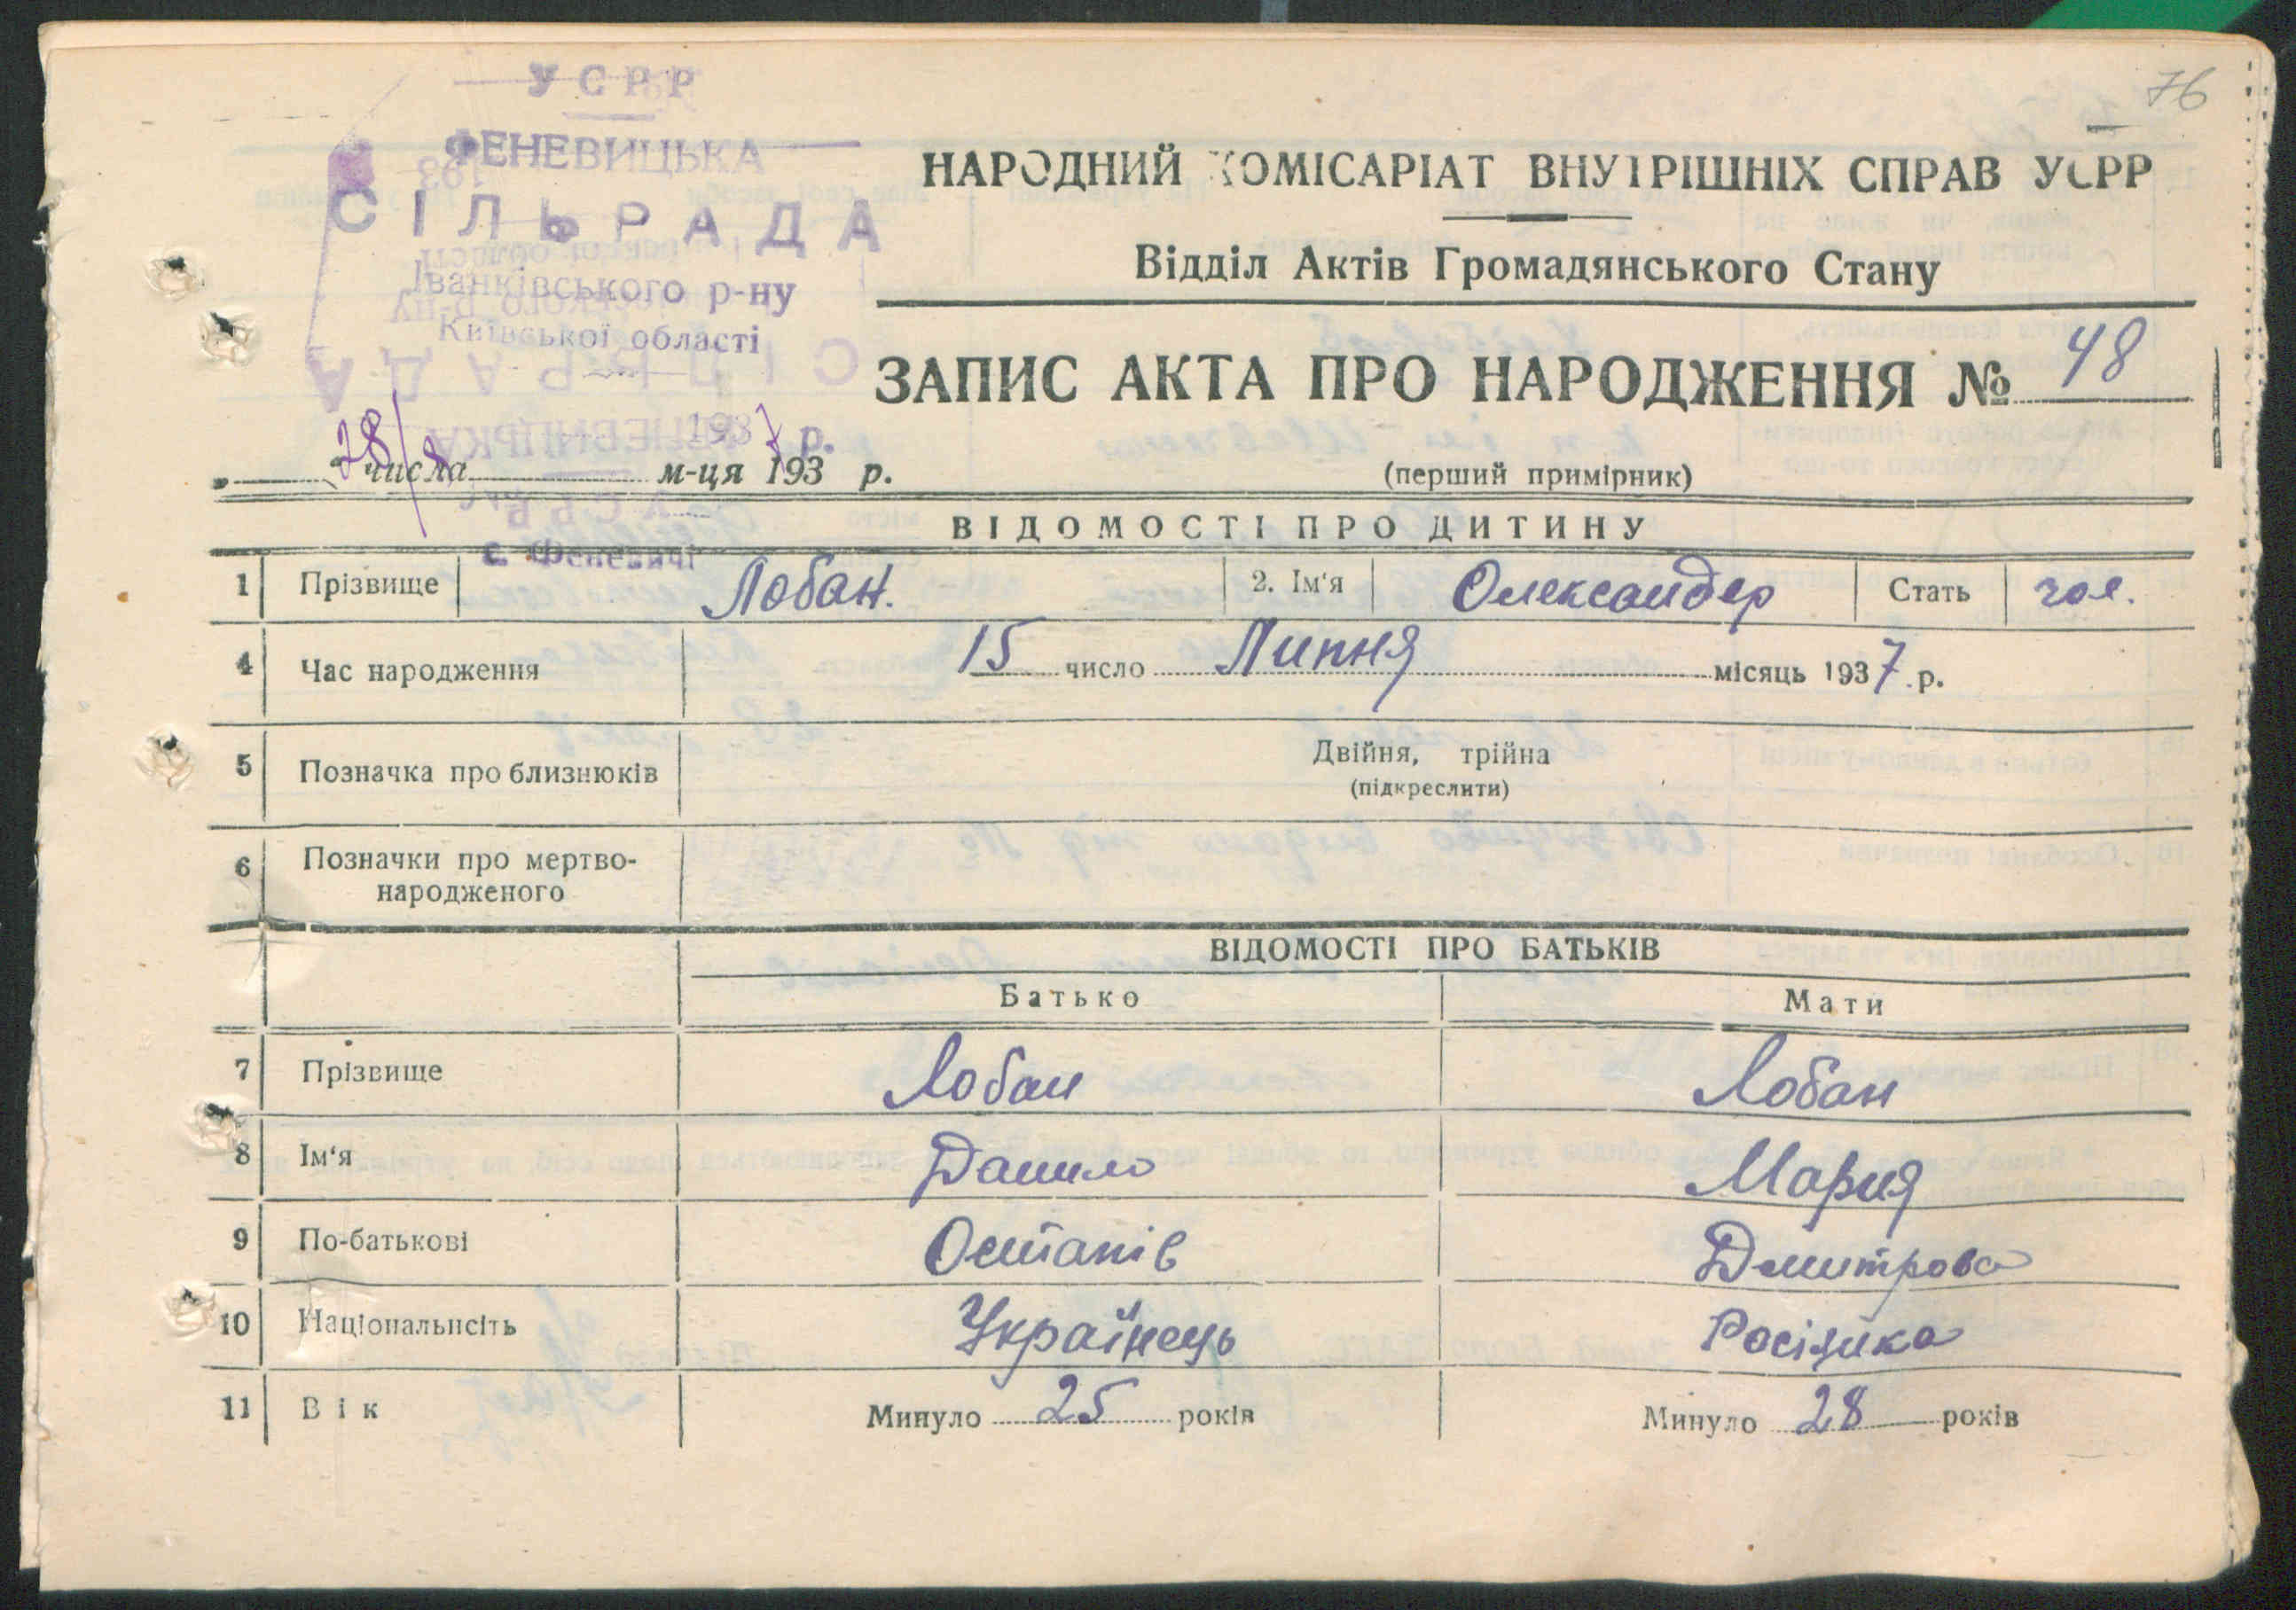 76
УСРР
ФЕНЕВИЦЬКА
СІЛЬРАДА
Іванківського р-ну
Київської області
28/8 1937 р.
„ “ числа м-ця 193 р.
с. Феневичі
НАРОДНИЙ КОМІСАРІАТ ВНУТРІШНІХ СПРАВ УСРР
Відділ Актів Громадянського Стану
ЗАПИС АКТА ПРО НАРОДЖЕННЯ № 48
(перший примірник)
ВІДОМОСТІ ПРО ДИТИНУ
1 Прізвище Лобан. 2. Ім'я Олександер Стать чол.
4 Час народження 15 число Липня місяць 1937 р.
5 Позначка про близнюків Двійня, трійна
(підкреслити)
6 Позначки про мертво-
народженого
ВІДОМОСТІ ПРО БАТЬКІВ
Батько Мати
7 Прізвище Лобан Лобан
8 Ім'я Данило Мария
9 По-батькові Остапів Дмитрова
10 Національність Українець Росіянка
11 Вік Минуло 25 років Минуло 28 років